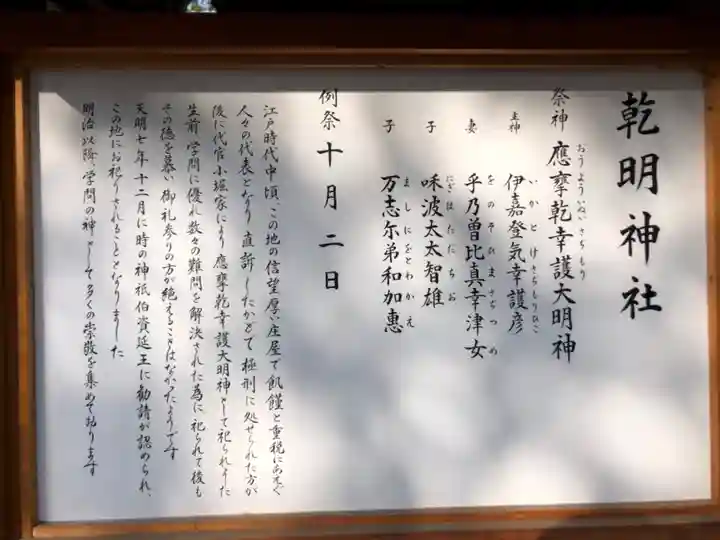 乾明神社
祭神 應孳乾幸護大明神
おうよういぬいさちもり
主神 伊嘉登気幸護彦
いかとけさちもりひこ
妻 乎乃曽比真幸津女
をのそひまさちつめ
子 味波太太智雄
にぎはたたちお
子 万志尓弟和加惠
ましにをとわかえ
例祭 十月二日
江戸時代中頃、この地の信望厚い庄屋で飢饉と重税にあえぐ
人々の代表となり直訴したかどで極刑に処せられた方が
後に代官小堀家により應孳乾幸護大明神として祀られました
生前、学問に優れ数々の難問を解決された為に祀られて後も
その徳を慕い御礼参りの方が絶えることはなかったようです
天明七年十二月に時の神祇伯資延王に勧請が認められ、
この地にお祀りされることとなりました
明治以降、学問の神として多くの崇敬を集めて おります